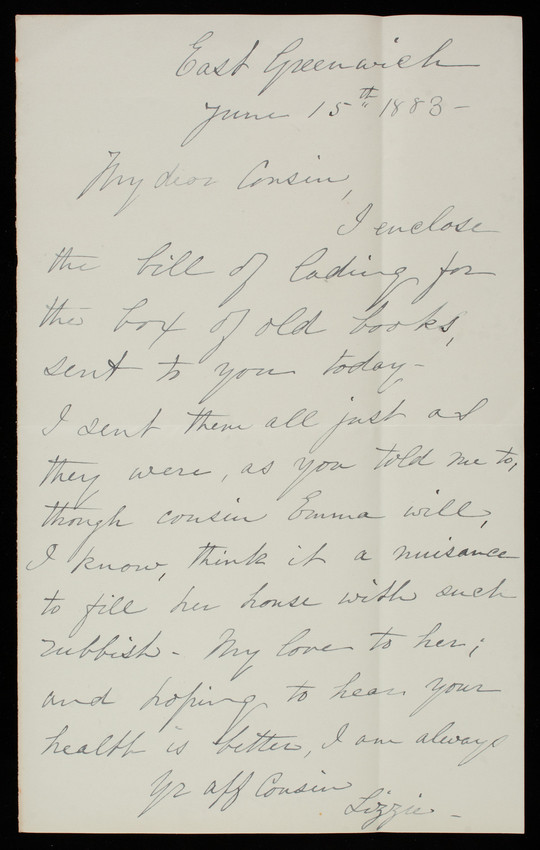 East Greenwich
June 15th 1883 -
My dear Cousin,
I enclose
the bill of lading for
the box of old books,
sent to you today -
I sent them all just as
they were, as you told me to,
though cousin Emma will,
I know, think it a nuisance
to fill her house with such
rubbish - My love to her;
and hoping to hear your
health is better, I am always
Yr aff Cousin
Lizzie -